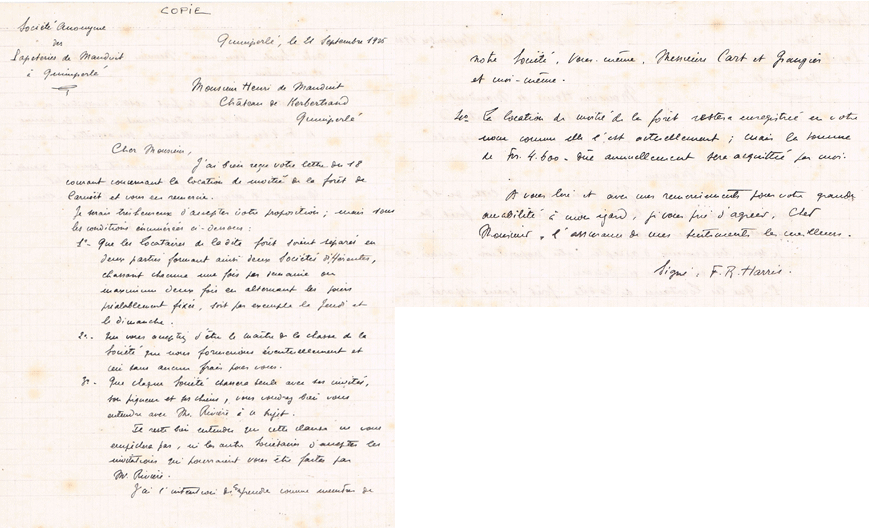 COPIE
Société Anonyme
des
Papeteries de Mauduit
à Quimperlé
Quimperlé, le 21 Septembre 1925
Monsieur Henri de Mauduit
Château de Kerbertrand
Quimperlé
Cher Monsieur,
J'ai bien reçu votre lettre du 18
courant concernant la location de moitié de la forêt de
Carnoët et vous en remercie.
Je serais très heureux d'accepter votre proposition ; mais sous
les conditions énumérées ci-dessous :
1º- Que les locataires de la dite forêt soient séparés en
deux parties formant ainsi deux Sociétés différentes,
chassant chacune une fois par semaine ou
maximum deux fois en alternant les jours
préalablement fixés, soit par exemple le Jeudi et
le dimanche.
2º- Que vous acceptez d'être le maître de la chasse de la
Société que nous formerions éventuellement et
ceci sans aucun frais pour vous.
3º- Que chaque Société chassera seule avec ses invités,
son piqueur et ses chiens, vous voudrez bien vous
entendre avec Mr. Rivière à ce sujet.
Il reste bien entendu que cette clause ne vous
empêchera pas, ni les autres Sociétaires d'accepter les
invitations qui pourraient vous être faites par
Mr. Rivière.
J'ai l'intention de prendre comme membres de
notre Société, vous-même, Messieurs Cart et Grangier
et moi-même.
4º- La location de moitié de la forêt restera enregistrée en votre
nom comme elle l'est actuellement ; mais la somme
de Frs 4.600- due annuellement sera acquittée par moi.
A vous lire et avec mes remerciements pour votre grande
amabilité à mon égard, je vous prie d'agréer, Cher
Monsieur, l'assurance de mes sentiments les meilleurs.
Signé, F. R. Harris.